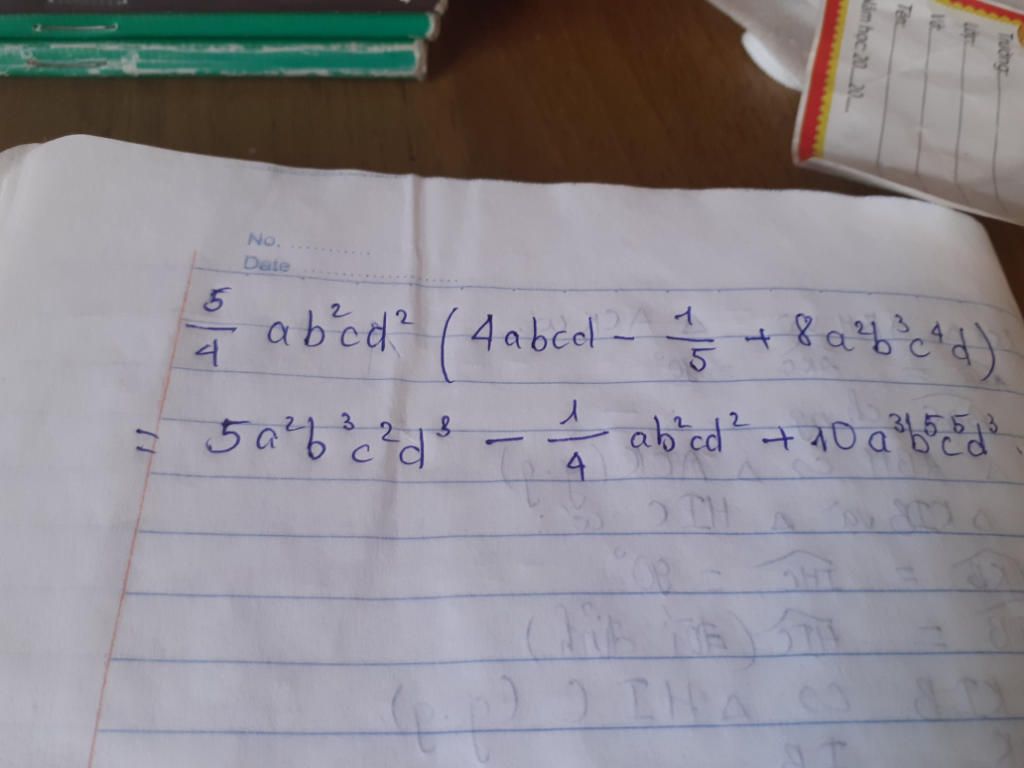 Trường:
Lớp:
Vở:
Tên:
Năm học: 20 20
No. ..........
Date ..........
5/4 ab²cd² (4abcd - 1/5 + 8a²b³c⁴d)
= 5a²b³c²d³ - 1/4 ab²cd² + 10a³b⁵c⁵d³